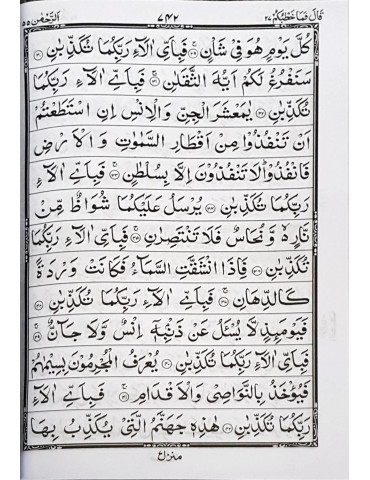 قَالَ فَمَا خَطْبُكُمْ ٢٧ ٧٤٢ اَلرَّحْمٰنُ ٥٥
كُلَّ يَوْمٍ هُوَ فِيْ شَاْنٍ ﴿٢٩﴾ فَبِاَيِّ اٰلَآءِ رَبِّكُمَا تُكَذِّبٰنِ ﴿٣٠﴾
سَنَفْرُغُ لَكُمْ اَيُّهَ الثَّقَلٰنِ ﴿٣١﴾ فَبِاَيِّ اٰلَآءِ رَبِّكُمَا
تُكَذِّبٰنِ ﴿٣٢﴾ يٰمَعْشَرَ الْجِنِّ وَالْاِنْسِ اِنِ اسْتَطَعْتُمْ
اَنْ تَنْفُذُوْا مِنْ اَقْطَارِ السَّمٰوٰتِ وَ الْاَرْضِ
فَانْفُذُوْا ؕ لَا تَنْفُذُوْنَ اِلَّا بِسُلْطٰنٍ ﴿٣٣﴾ فَبِاَيِّ اٰلَآءِ
رَبِّكُمَا تُكَذِّبٰنِ ﴿٣٤﴾ يُرْسَلُ عَلَيْكُمَا شُوَاظٌ مِّنْ
نَّارٍ ۙ۬ وَّ نُحَاسٌ فَلَا تَنْتَصِرٰنِ ﴿٣٥﴾ فَبِاَيِّ اٰلَآءِ رَبِّكُمَا
تُكَذِّبٰنِ ﴿٣٦﴾ فَاِذَا انْشَقَّتِ السَّمَآءُ فَكَانَتْ وَرْدَةً
كَالدِّهَانِ ﴿٣٧﴾ فَبِاَيِّ اٰلَآءِ رَبِّكُمَا تُكَذِّبٰنِ ﴿٣٨﴾
فَيَوْمَئِذٍ لَّا يُسْـَٔلُ عَنْ ذَنْۢبِهٖۤ اِنْسٌ وَّلَا جَآنٌّ ﴿٣٩﴾
فَبِاَيِّ اٰلَآءِ رَبِّكُمَا تُكَذِّبٰنِ ﴿٤٠﴾ يُعْرَفُ الْمُجْرِمُوْنَ بِسِيْمٰهُمْ
فَيُؤْخَذُ بِالنَّوَاصِيْ وَالْاَقْدَامِ ﴿٤١﴾ فَبِاَيِّ اٰلَآءِ
رَبِّكُمَا تُكَذِّبٰنِ ﴿٤٢﴾ هٰذِهٖ جَهَنَّمُ الَّتِيْ يُكَذِّبُ بِهَا
منزل